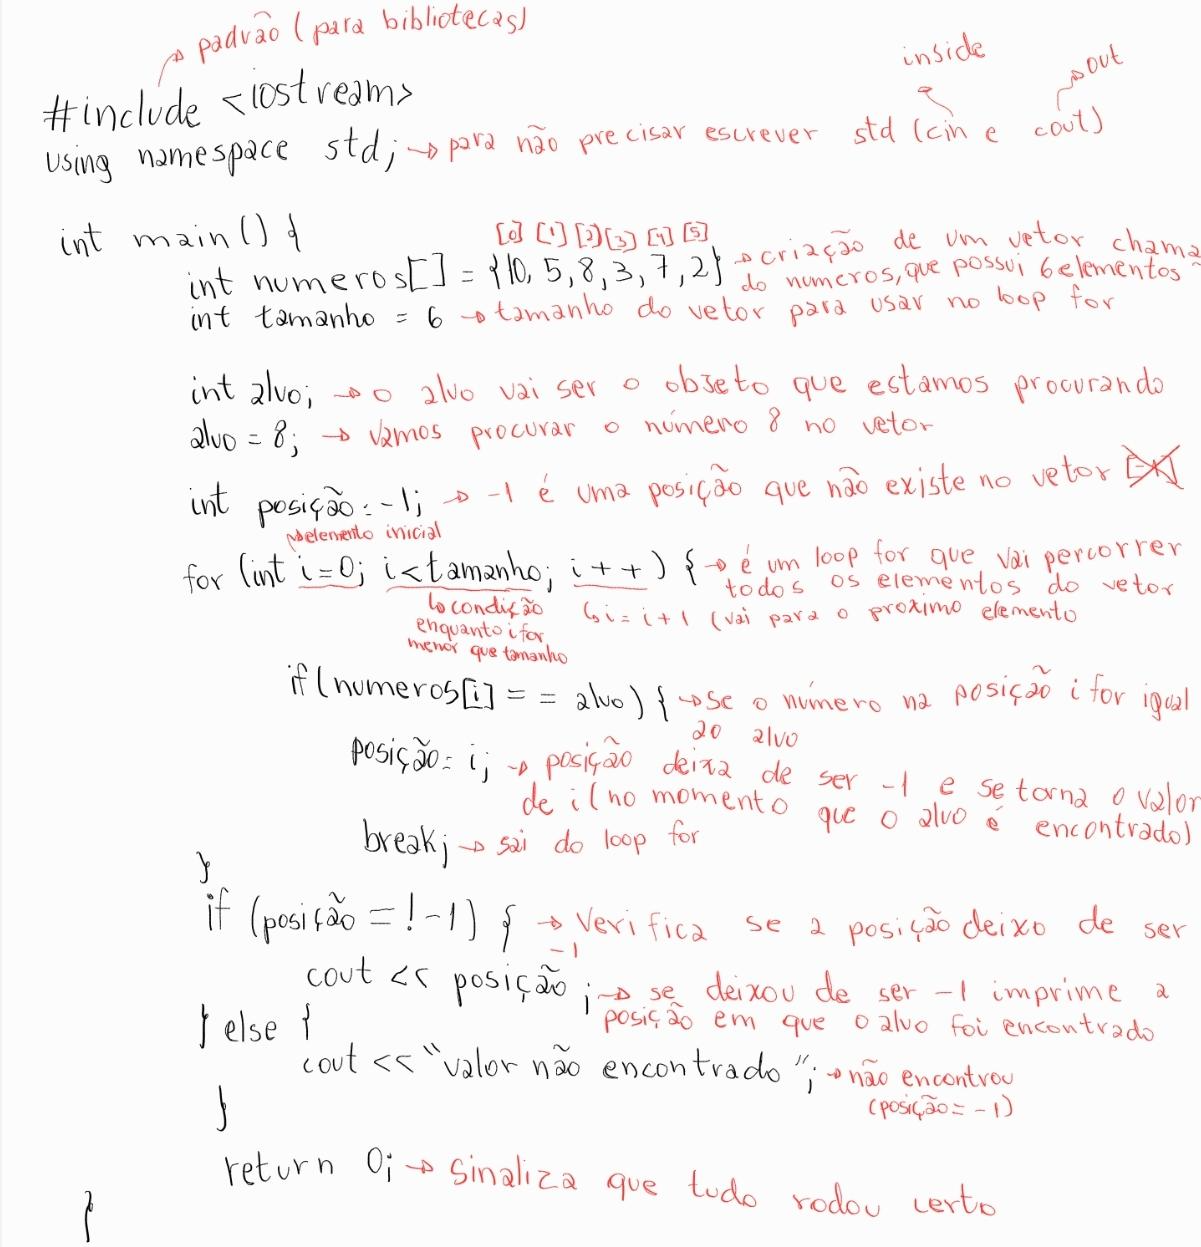 padrão (para bibliotecas)
inside
out
#include <iostream>
using namespace std; → para não precisar escrever std (cin e cout)
int main() {
[0] [1] [2] [3] [4] [5]
int numeros[] = {10, 5, 8, 3, 7, 2} → criação de um vetor chama
do numeros, que possui 6 elementos
int tamanho = 6 → tamanho do vetor para usar no loop for
int alvo; → o alvo vai ser o objeto que estamos procurando
alvo = 8; → vamos procurar o número 8 no vetor
int posição = -1; → -1 é uma posição que não existe no vetor
elemento inicial
for (int i=0; i<tamanho; i++) { → é um loop for que vai percorrer
todos os elementos do vetor
↳ condição
enquanto i for
menor que tamanho
↳ i = i+1 (vai para o proximo elemento
if(numeros[i] = = alvo) { → se o número na posição i for igual
ao alvo
posição = i; → posição deixa de ser -1 e se torna o valor
de i (no momento que o alvo é encontrado)
break; → sai do loop for
}
if (posição = ! -1) { → Verifica se a posição deixo de ser
-1
cout << posição ; → se deixou de ser -1 imprime a
posição em que o alvo foi encontrado
} else {
cout << "valor não encontrado"; → não encontrou
(posição = -1)
}
return 0; → sinaliza que tudo rodou certo
}